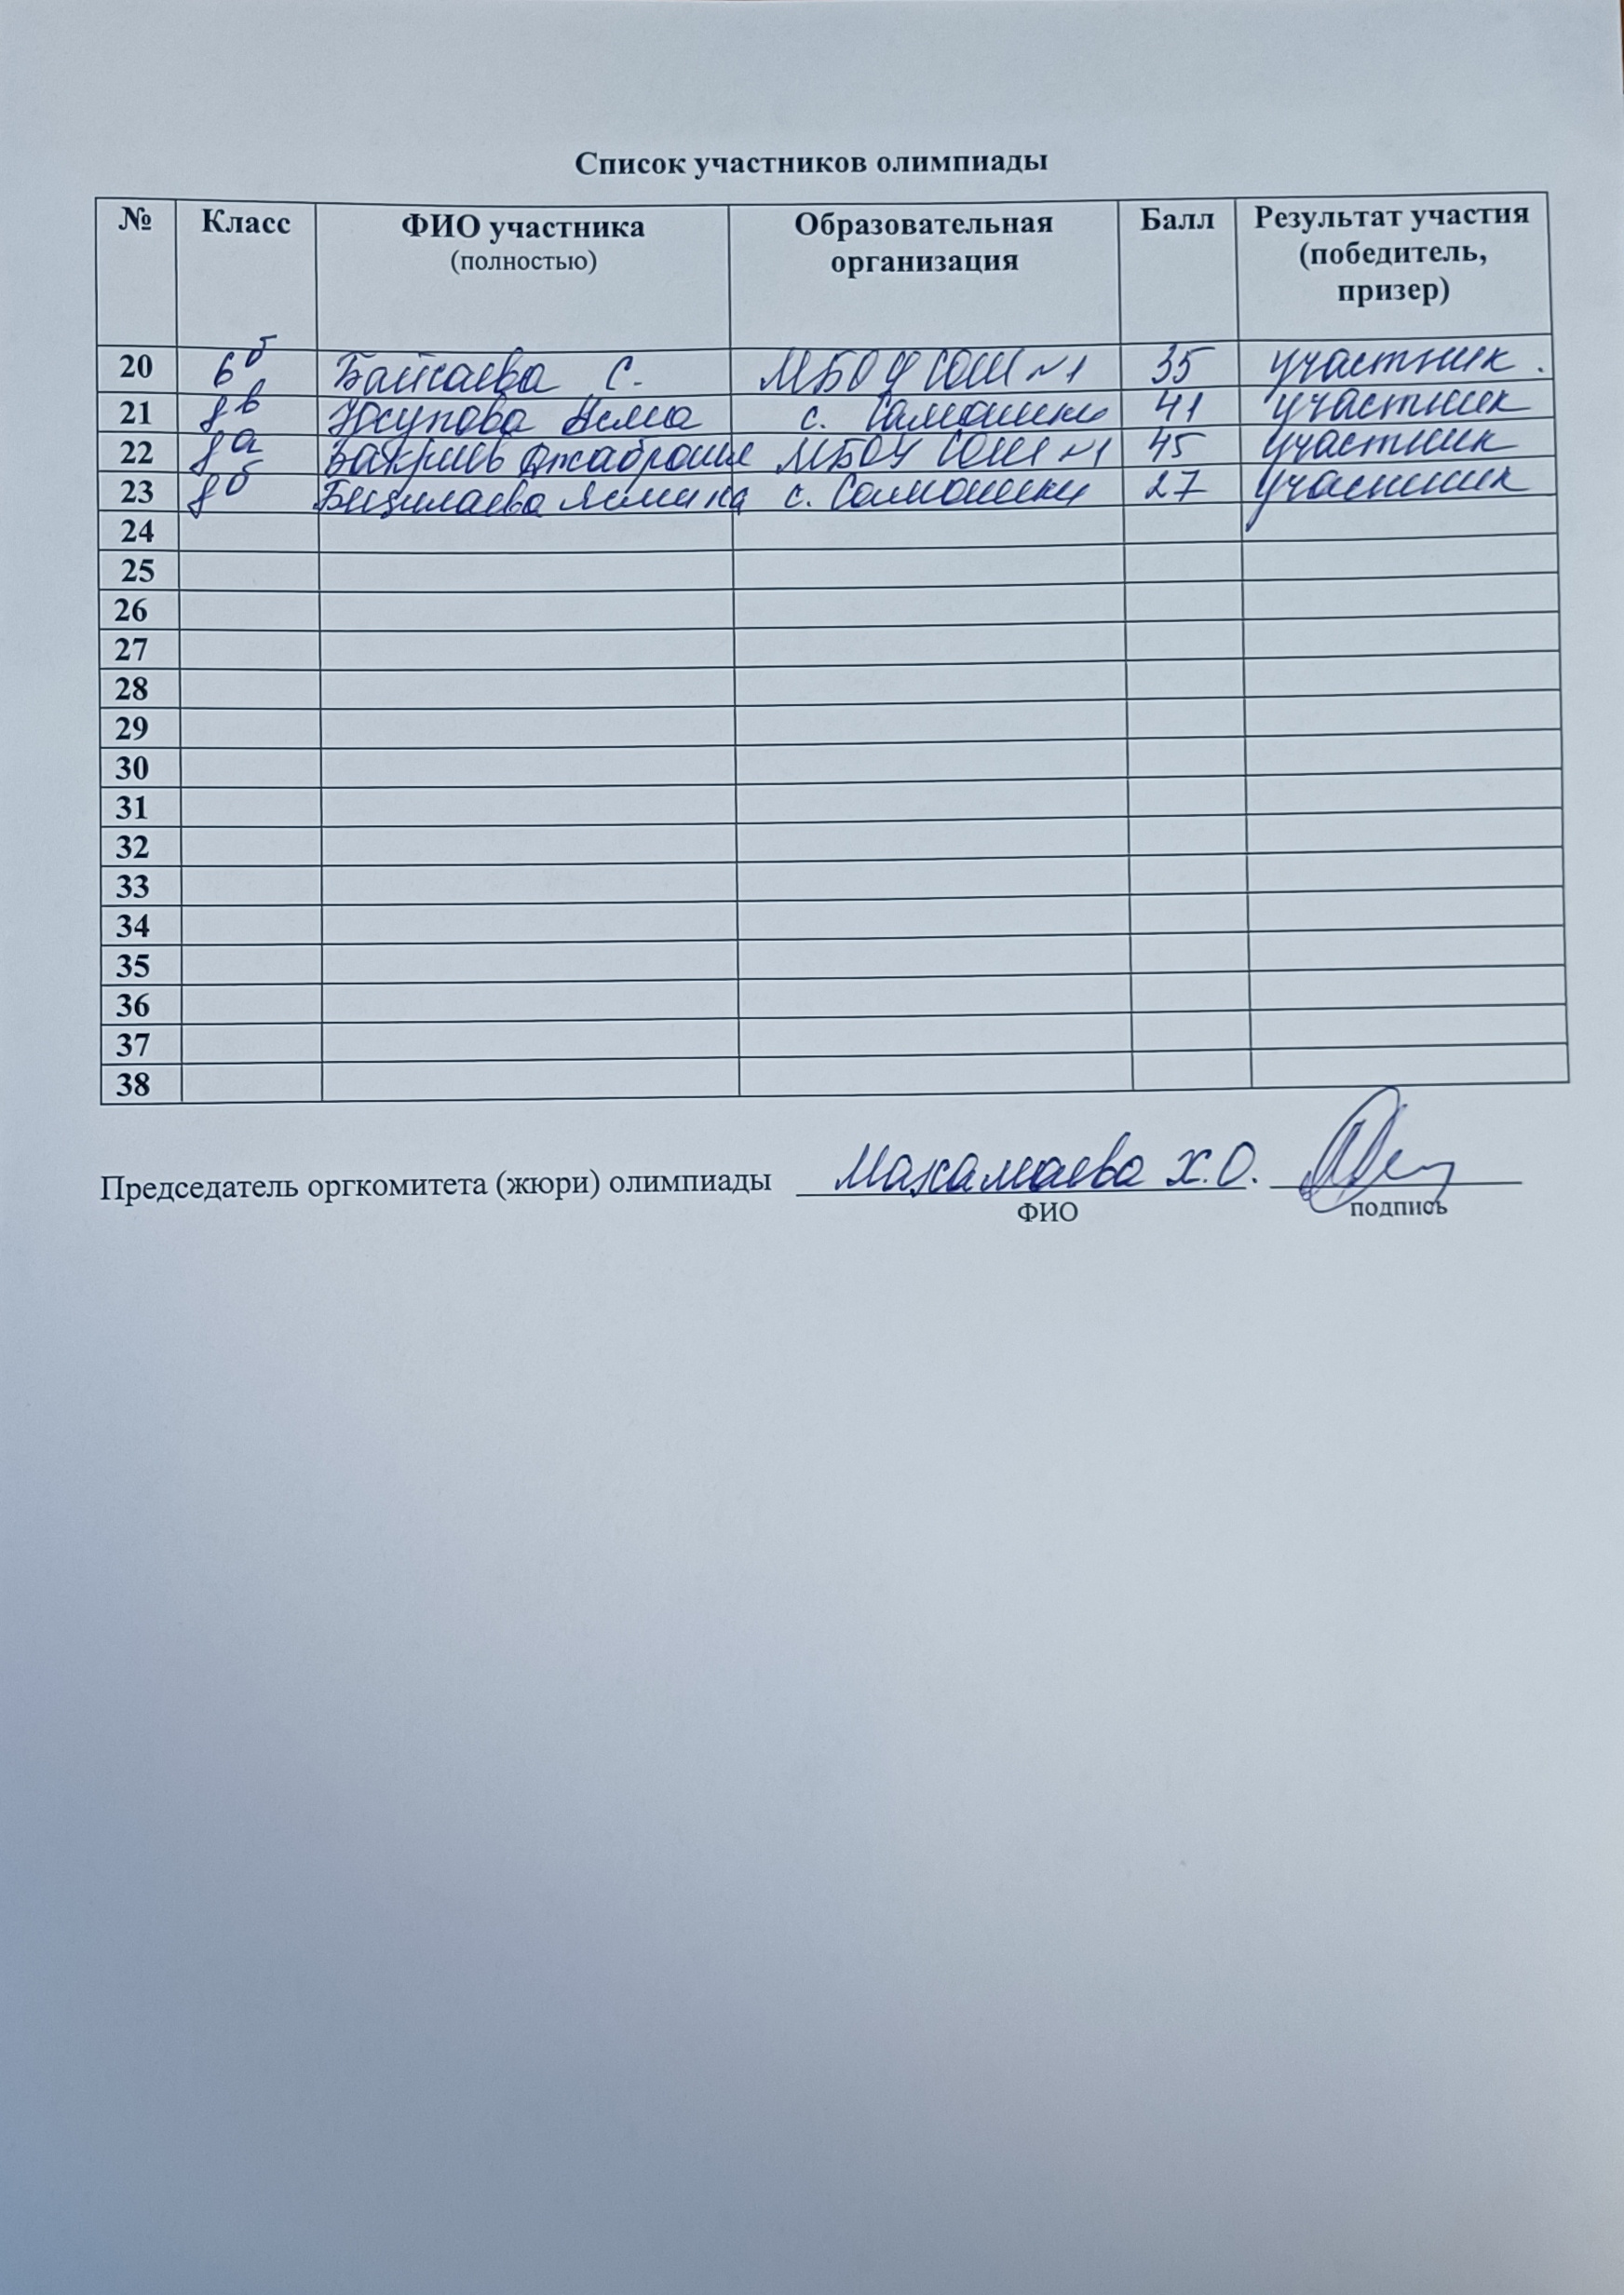 Список участников олимпиады
№ Класс ФИО участника (полностью) Образовательная организация Балл Результат участия (победитель, призер)
20 6б С. МБОУ СОШ №1 35 участник.
21 8в Юсупова с. Самашки 41 участник
22 8а МБОУ СОШ №1 45 участник
23 8б с. Самашки 27 участник
24
25
26
27
28
29
30
31
32
33
34
35
36
37
38
Председатель оргкомитета (жюри) олимпиады Махамаева Х.О.
ФИО подпись